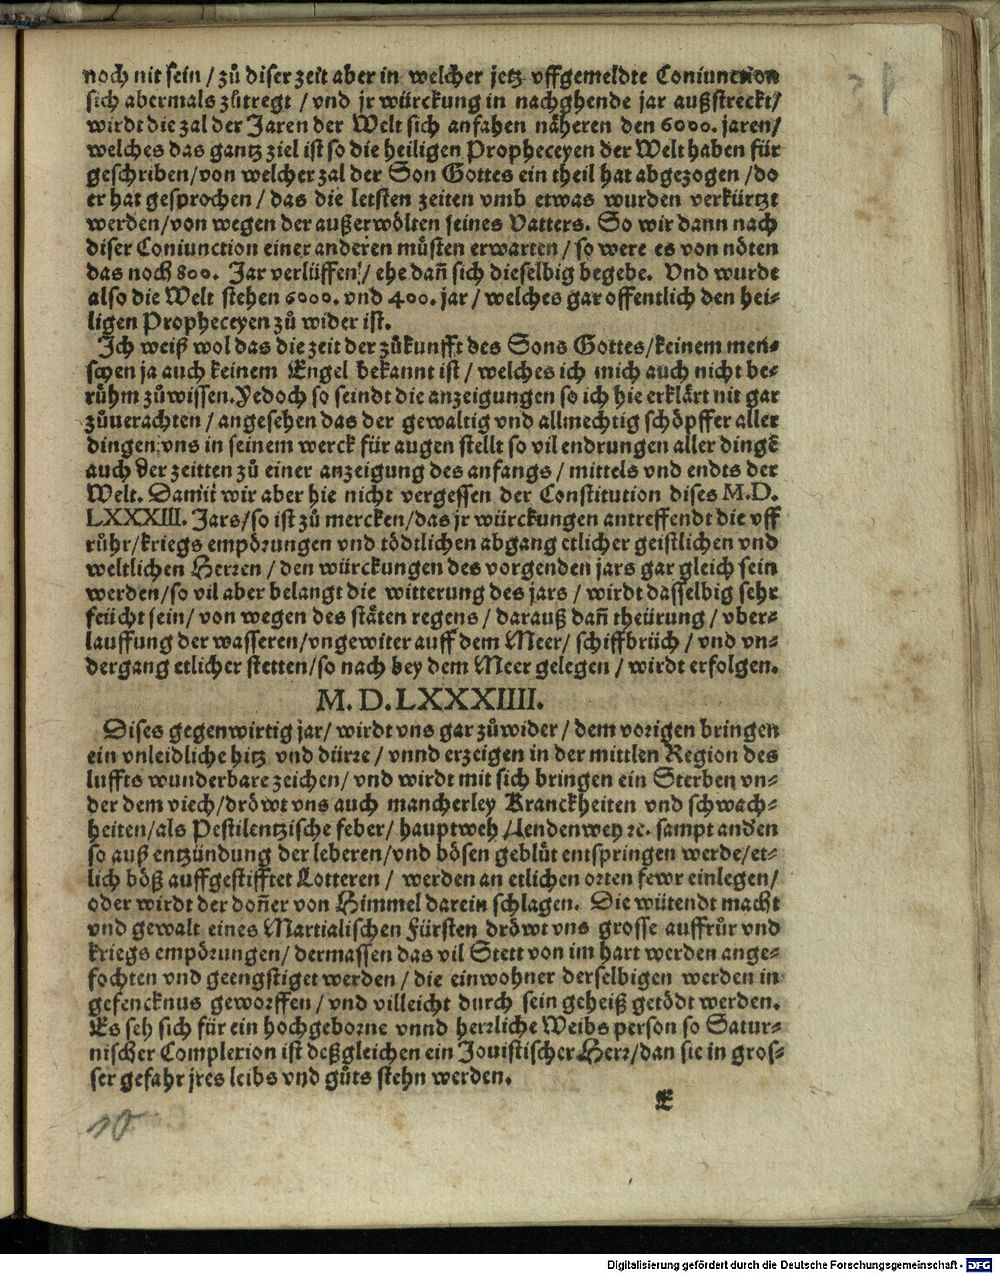 noch nit sein / zů diser zeit aber in welcher jetz vffgemeldte Coniunction
sich abermals zůtregt / vnd jr würckung in nachghende jar außstreckt/
wirdt die zal der Jaren der Welt sich anfahen näheren den 6000. jaren/
welches das gantz ziel ist so die heiligen Propheceyen der Welt haben für
geschriben/von welcher zal der Son Gottes ein theil hat abgezogen /do
er hat gesprochen / das die letsten zeiten vmb etwas wurden verkürtzt
werden/von wegen der außerwölten seines Vatters. So wir dann nach
diser Coniunction einer anderen müsten erwarten / so were es von nöten
das noch 800. Jar verlüffen / ehe dañ sich dieselbig begebe. Vnd wurde
also die Welt stehen 6000. vnd 400. jar / welches gar offentlich den hei-
ligen Propheceyen zů wider ist.
Ich weiß wol das die zeit der zůkunfft des Sons Gottes/keinem men-
schen ja auch keinem Engel bekannt ist / welches ich mich auch nicht be-
rühm zůwissen. Yedoch so seindt die anzeigungen so ich hie erklärt nit gar
zůuerachten / angesehen das der gewaltig vnd allmechtig schöpffer aller
dingen vns in seinem werck für augen stellt so vil endrungen aller dingē
auch der zeitten zů einer anzeigung des anfangs / mittels vnd endts der
Welt. Damit wir aber hie nicht vergessen der Constitution dises M.D.
LXXXIII. Jars/so ist zů mercken/das jr würckungen antreffendt die vff
rühr/kriegs empörungen vnd tödtlichen abgang etlicher geistlichen vnd
weltlichen Herren / den würckungen des vorgenden jars gar gleich sein
werden/so vil aber belangt die witterung des jars / wirdt dasselbig sehr
feücht sein/von wegen des stäten regens / darauß dañ theürung / vber-
lauffung der wasseren/vngewiter auff dem Meer/ schiffbrüch / vnd vn-
dergang etlicher stetten/so nach bey dem Meer gelegen / wirdt erfolgen.
M. D. LXXXIIII.
Dises gegenwirtig jar/ wirdt vns gar zůwider / dem vorigen bringen
ein vnleidliche hitz vnd dürre / vnnd erzeigen in der mittlen Region des
luffts wunderbare zeichen/ vnd wirdt mit sich bringen ein Sterben vn-
der dem viech/dröwt vns auch mancherley Kranckheiten vnd schwach-
heiten/als Pestilentzische feber/ hauptweh /Lendenwey ꝛc. sampt andēn
so auß entzündung der leberen/vnd bösen geblůt entspringen werdē/et-
lich böß auffgestifftet Lotteren / werden an etlichen orten fewr einlegen/
oder wirdt der doñer von Himmel darein schlagen. Die wütendt macht
vnd gewalt eines Martialischen Fürsten dröwt vns grosse auffrůr vnd
kriegs empörungen/ dermassen das vil Stett von im hart werden ange-
fochten vnd geengstiget werden / die einwohner derselbigen werden in
gefencknus geworffen/ vnd villeicht durch sein geheiß getödt werden.
Es seh sich für ein hochgeborne vnnd herrliche Weibs person so Satur-
nischer Complexion ist deßgleichen ein Jouistischer Herr/dan sie in gros-
ser gefahr jres leibs vnd gůts stehn werden.
E
10
Digitalisierung gefördert durch die Deutsche Forschungsgemeinschaft - DFG